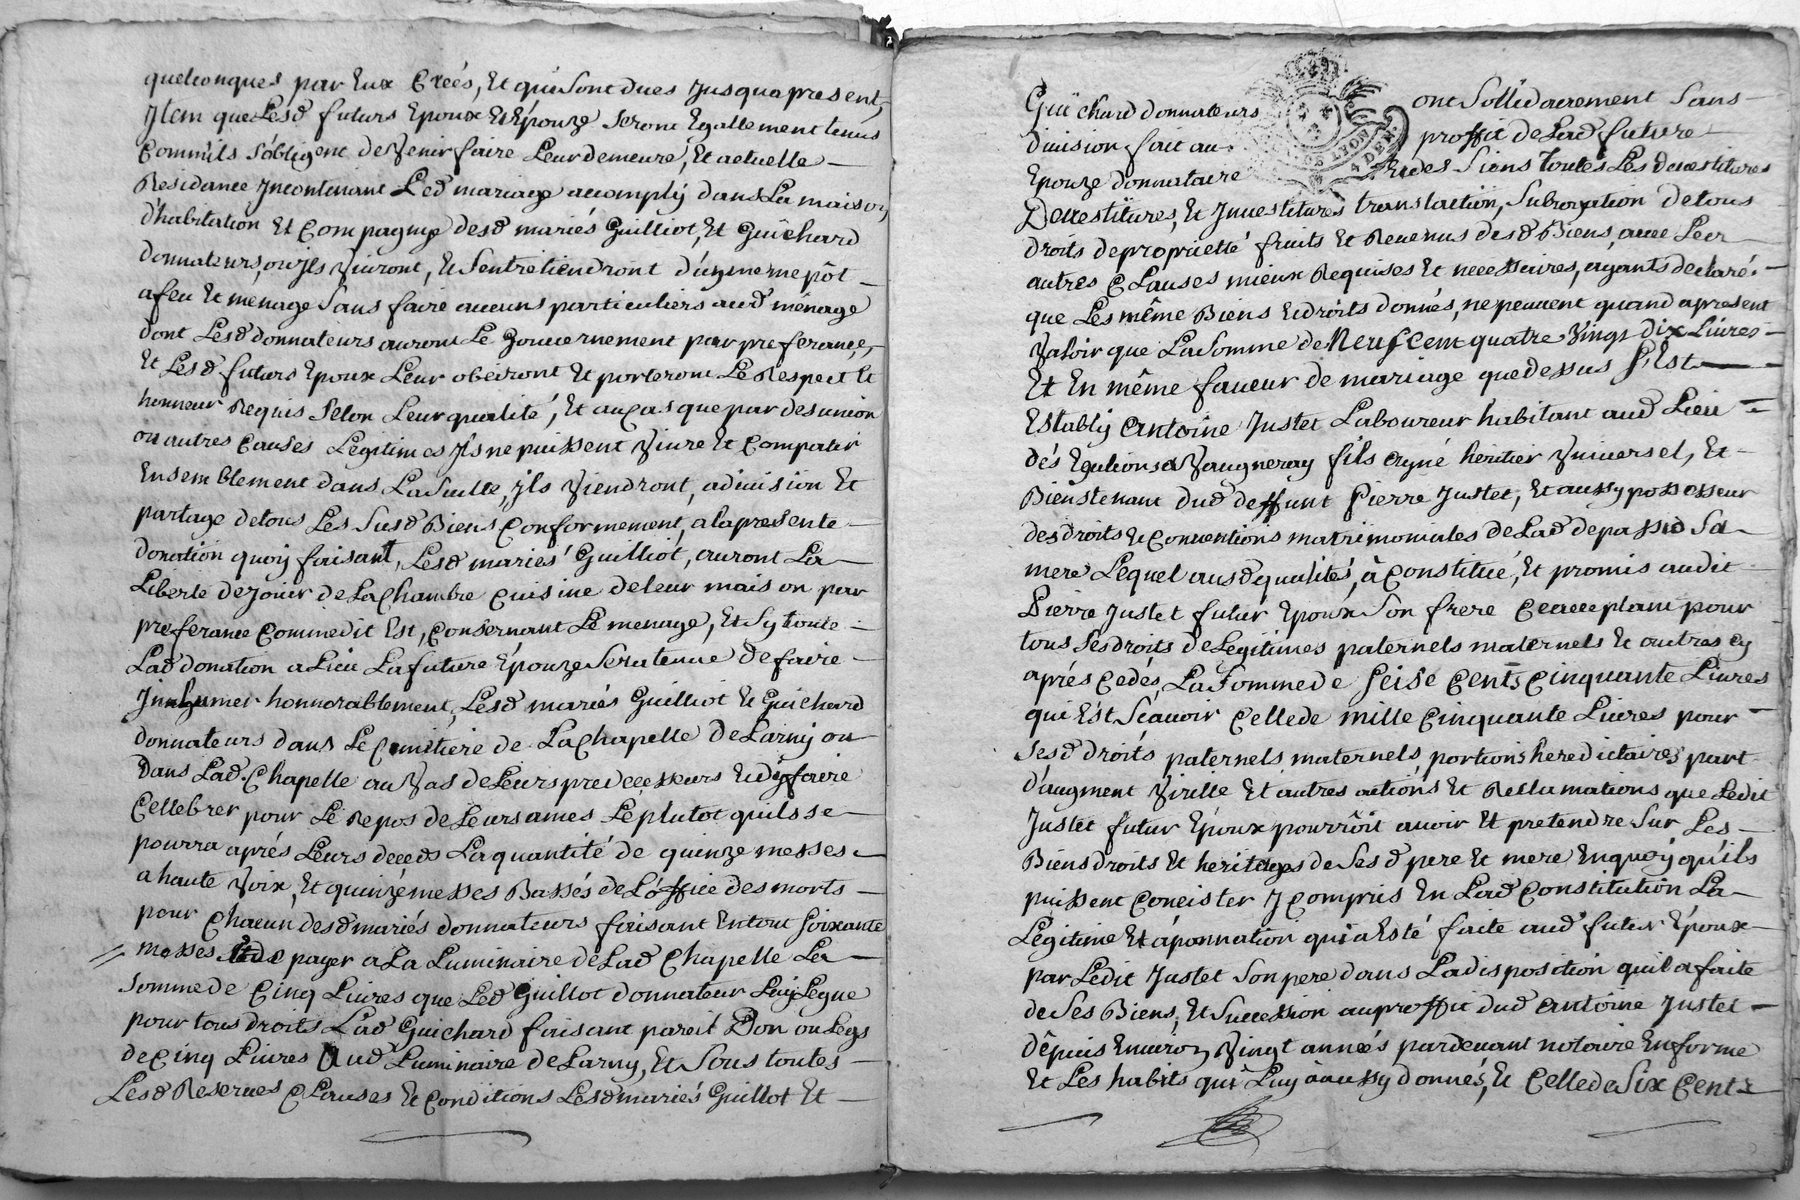 quelconques par Eux Créés, Et qui Sont dues Jusqua present,
Jtem que Lesd futurs Epoux Et Épouze Seront Egallement tenus
Comm'ils s'obligent de Venir faire Leur demeure, Et actuelle
Residance Jncontinant Led mariage accomply dans La maison
d'habitation Et Compagnie desd mariés Guilliot, Et Guichard
donnateurs, ou Jls Vivront, Et S'entretiendront d'un meme pôt
a feu Et menage Sans faire aucuns particuliers aud ménage
dont Lesd donnateurs auront Le Gouvernement par preferance,
Et Lesd futurs Epoux Leur obéiront Et porteront Le Respect Et
honneur Requis Selon Leur qualité, Et au Cas que par desunion
ou autres Causes Légitimes Jls ne puissent Vivre Et Compatir
Ensemblement dans La Suitte, Jls Viendront, a division Et
partage de tous Les Susd Biens Conformement, a la presente
donation quoy faisant, Lesd mariés Guilliot, auront La
Liberte de Jouir de La Chambre Cuisine de leur maison par
preferance Comme dit Est, Consernant Le menage, Et Sy toute
Lad donation a Lieu La future Épouze Sera tenue de faire
Jnhumer honnorablement, Lesd mariés Guilliot Et Guichard
donnateurs dans Le Cimitiere de La Chapelle de Larny ou
dans Lad. Chapelle au Vas de Leurs predecesseurs Et dy faire
Cellebrer pour Le Repos de Leurs ames Le plutot quil se
pourra aprés Leurs deceds La quantité de quinze messes
a haute Voix, Et quinze messes Bassés de L'office des morts
pour Chacun desd mariés donnateurs faisant En tout Soixante
messes Et de payer a La Luminaire de Lad Chapelle La
Somme de Cinq Livres que Led Guillot donnateur Luy Legue
pour tous droits Lad Guichard faisant pareil Don ou Legs
de Cinq Livres Aud Luminaire de Larny, Et Sous toutes
Lesd Reserves Clauses Et Conditions Lesd mariés Guillot Et
Guichard donnateurs ont Sollidairement Sans
division fait au proffit de Lad future
Epouze donnataire Et des Siens toutes Les devestitures
Devestitures, Et Jnvestitures translation, Subrogation de tous
droits de proprietté fruits Et Revenus desd Biens, avec Les
autres Clauses mieux Requises Et necessaires, ayants declaré
que Les même Biens Et droits donnés, ne peuvent quand apresent
Valoir que La Somme de Neuf Cent quatre Vingt dix Livres
Et En même faveur de mariage que dessus S'Est
Etably Antoine Justet Laboureur habitant aud Lieu
dés Vaugneray fils ayné heritier Vniversel, Et
Bienstenant dud deffunt Pierre Justet, Et aussy possesseur
des droits Et Conventions matrimoniales de Lad depassio Sa
mere Lequel ausd qualités, à Constitué, Et promis audit
Pierre Justet futur Epoux Son frere Ceacceptant pour
tous Ses droits de Légitimes paternels maternels Et autres Cy
aprés Cedés, La Somme de Seise Cents Cinquante Livres
qui Est Scavoir Celle de mille Cinquante Livres pour
Sesd droits paternels maternels, portions heredictaires part
d'augment Virille Et autres actions Et Reclamations que Ledit
Justet futur Époux pourrôit avoir Et pretendre Sur Les
Biens droits Et heritages de Sesd pere Et mere En quoy qu'ils
puissent Concister Y Compris En Lad Constitution La
Légitime Et áponnation qui a Esté faite aud futur Époux
par Ledit Justet Son pere dans La disposition quil a faite
de Ses Biens, Et Succession au proffit dud Antoine Justet
dêpuis Environ Vingt années pardevant notaire En forme
Et Les habits qui Luy à aussy donnés, Et Celle de Six Cents